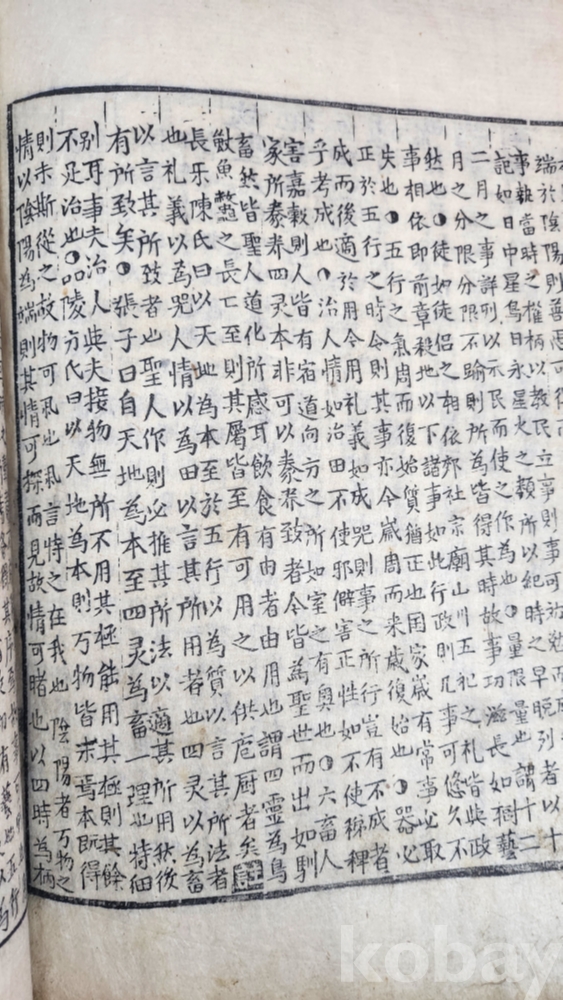 端於陰陽則善惡可得
事執當時之權柄以教民立事則事可勸勉而成
記如日中星鳥日永星火之類所以紀時之早晚列者以十
二月之事詳列以示民而使之作為也○量限量也謂十二
月之分限分限不踰則所為皆得其時故事功滋長如樹藝
然也○徒如徒侶之相依郊社宗廟山川五祀之礼皆與政
事相依即前章殺地以下諸事如此行政則凡事可悠久不
失也○五行之氣周而復始質猶正也国家歲有常事必取
正於五行之時令則其事亦今歲周而来歲復始也○器必
成而後適於用今用礼義如成器則事之所行豈有不成者
乎考成也○治人情如治田不使邪僻害正性如不使稊稗
害嘉穀則人皆有宿道向方之所如室之有奧也○六畜人
家所豢养四灵本非可以豢养致者今皆為聖世而出如馴
畜然皆聖人道化所感耳飲食有由者由用也謂四靈為鳥
獸魚鱉之長長至則其屬皆至有可用之以供庖厨者矣註
長乐陳氏曰以天地為本至於五行以為質以言其所法者
也礼義以為器人情以為田以言其所用者也四灵以為畜
以言其所致者也聖人作則必推其所法以適其所用然後
有所致矣○張子曰自天地為本至四灵為畜一理也特細
別耳事夫治人與夫接物無所不用其極能用其極則其餘
不足治也○陵方氏曰以天地為本則万物皆求焉本既得
則末斯從之故物可也言持之在我也陰陽者万物之
情以陰陽為端則其情可探而見故情可睹也以四時為柄
kobay